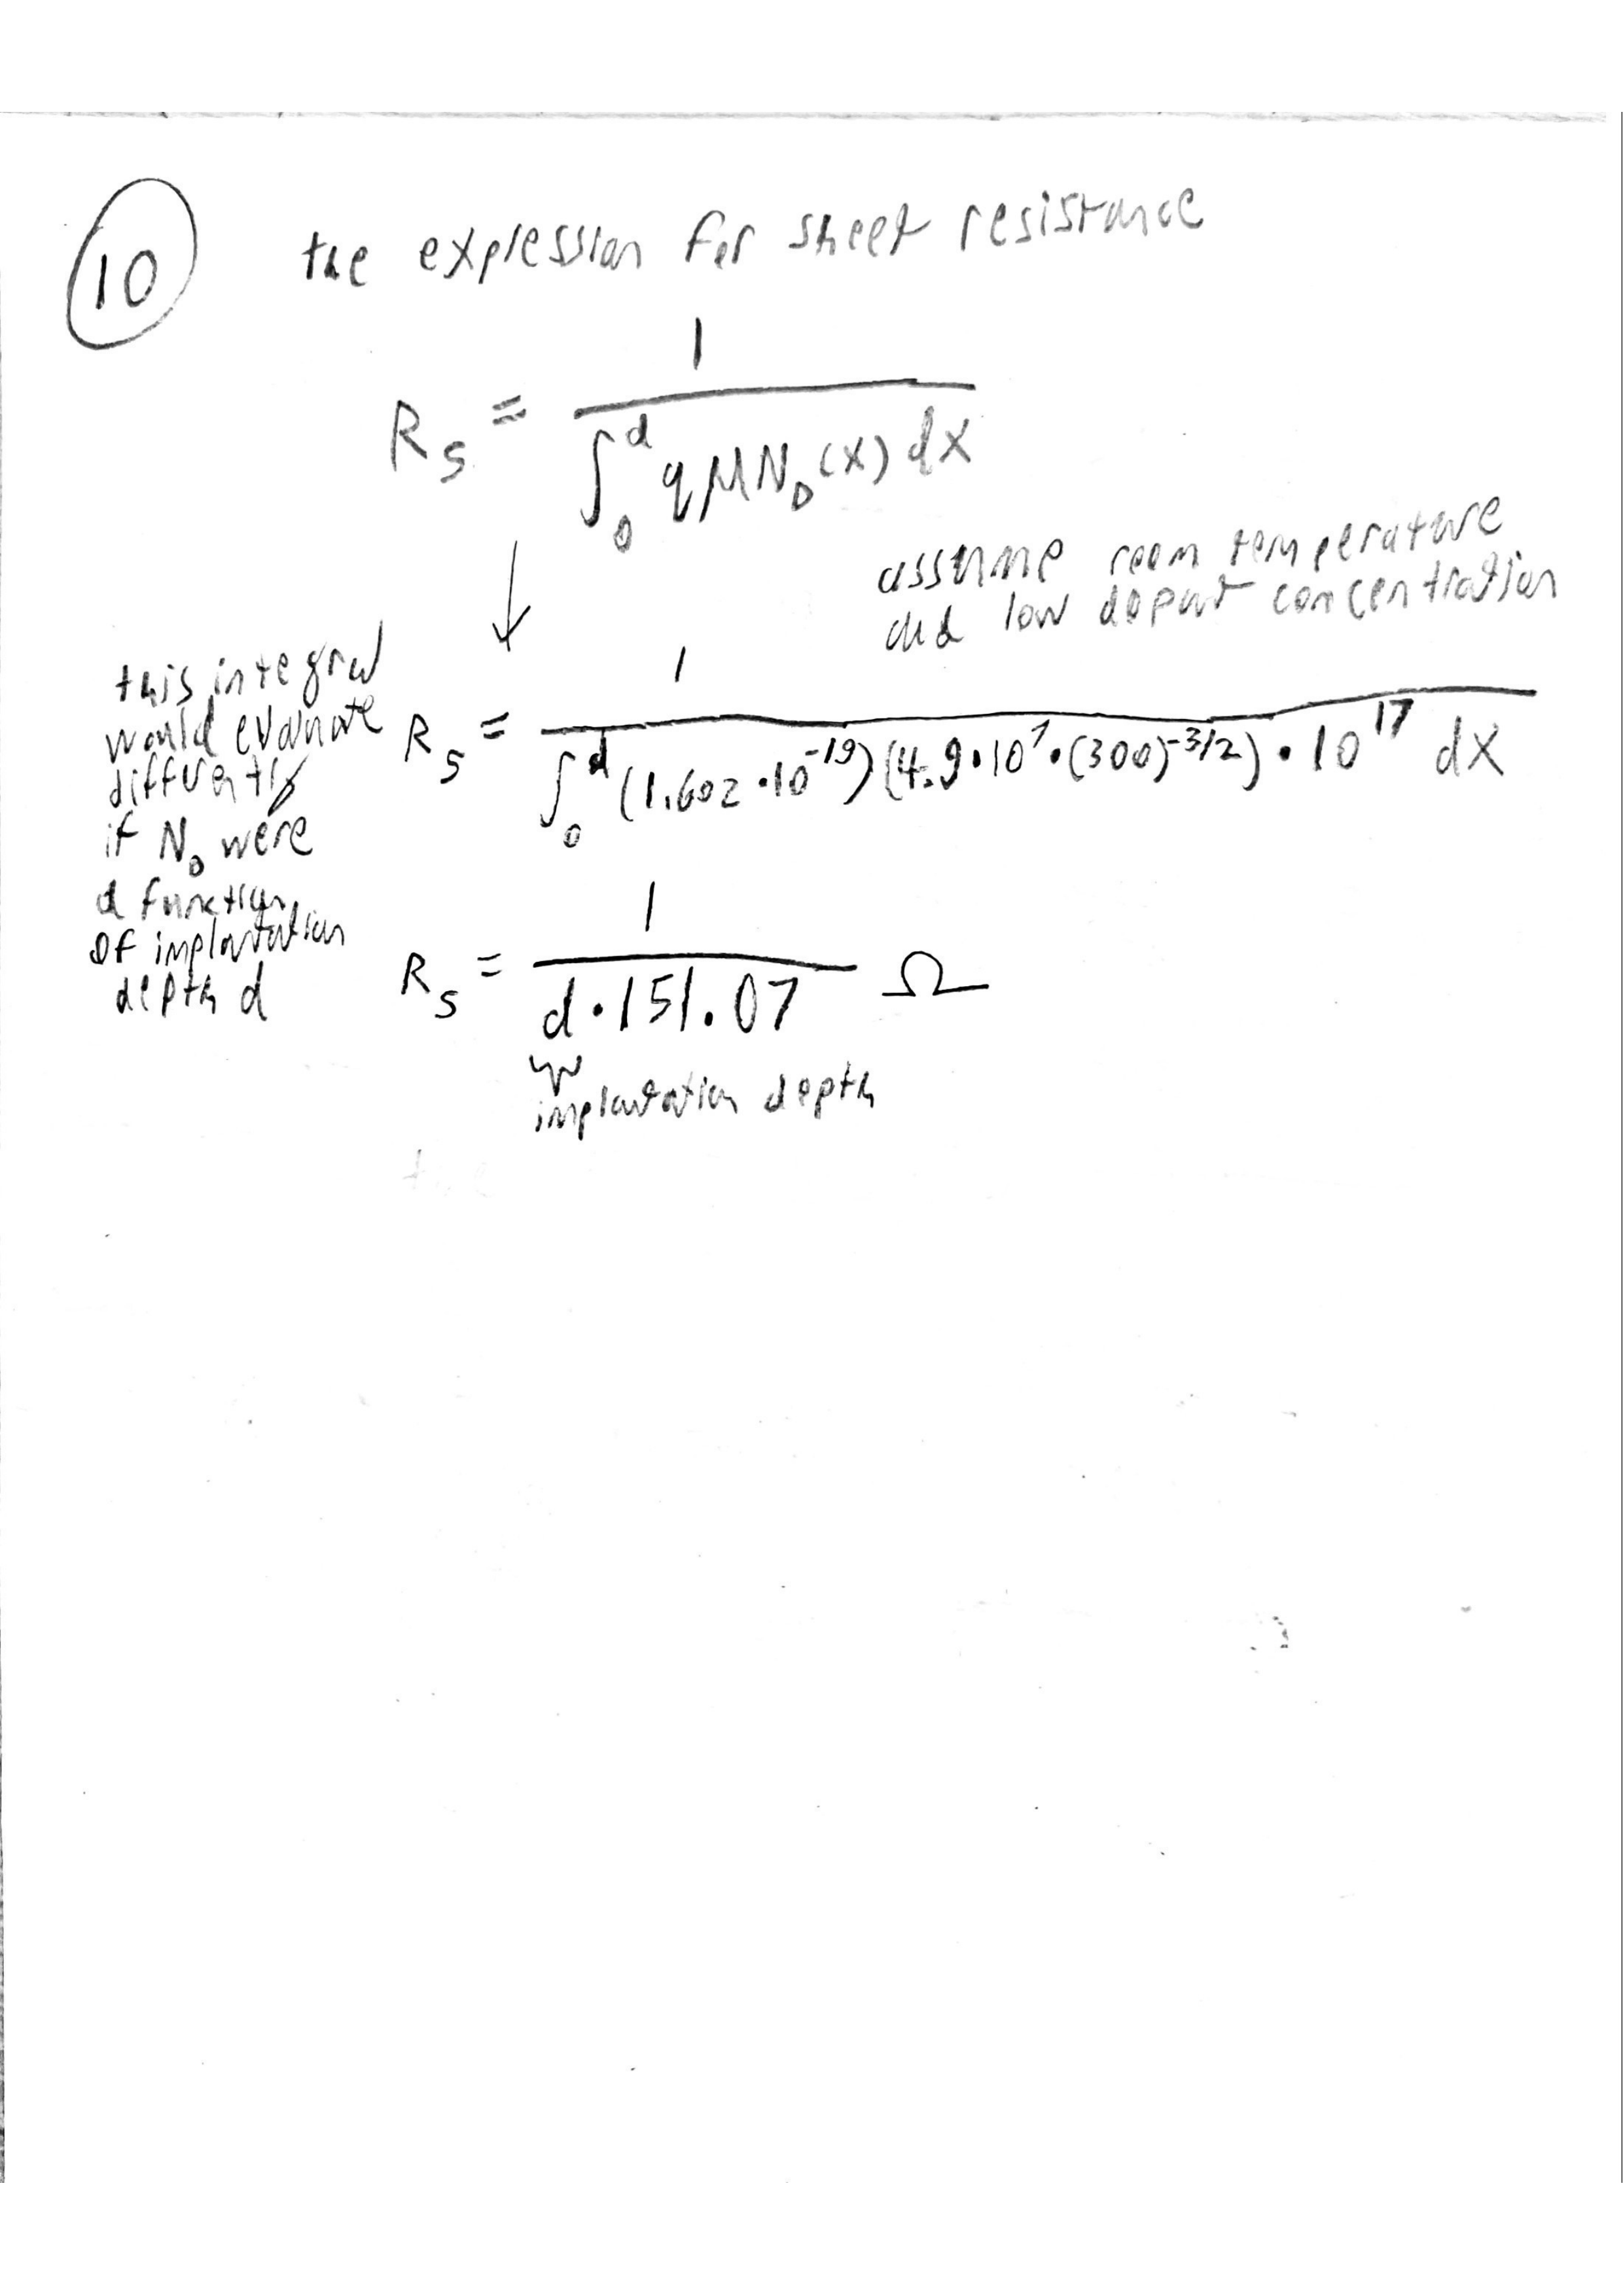 10
the expression for sheet resistance
R_S = 1 / ∫_0^d q μ N_D (x) dx
assume room temperature
and low dopant concentration
↓
this integral
would evaluate
differently
if N_D were
a function
of implantation
depth d
R_S = 1 / ∫_0^d (1.602 · 10^-19) (4.9 · 10^7 · (300)^-3/2) · 10^17 dx
R_S = 1 / d · 151.07 Ω
implantation depth